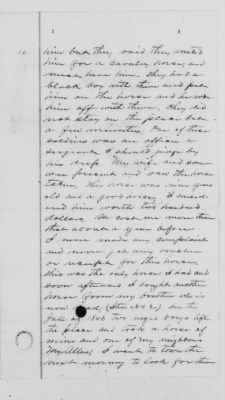 him but they said they wanted
him for a cavalry horse, and
must have him. They had a
black boy with them and put
him on this horse and he rode
him off with them. They did
not stay on the place but
a few minutes. One of these
soldiers was an officer a
sergeant I should judge by
his dress. My wife and son
was present and saw the horse
taken. This horse was nine years
old and a good horse. I consid-
ered him worth two hundred
dollars. He cost me more than
that about a year before
I never made any complaint
and never got any voucher
or receipt for this horse.
this was the only horse I had and
soon afterward I bought another
horse from my brother who is
now dead (Item No 2.) in the
fall of 1863 two negro boys left
the place and took a horse of
mine and one of my neighbors
I went to town the
next morning to look for them